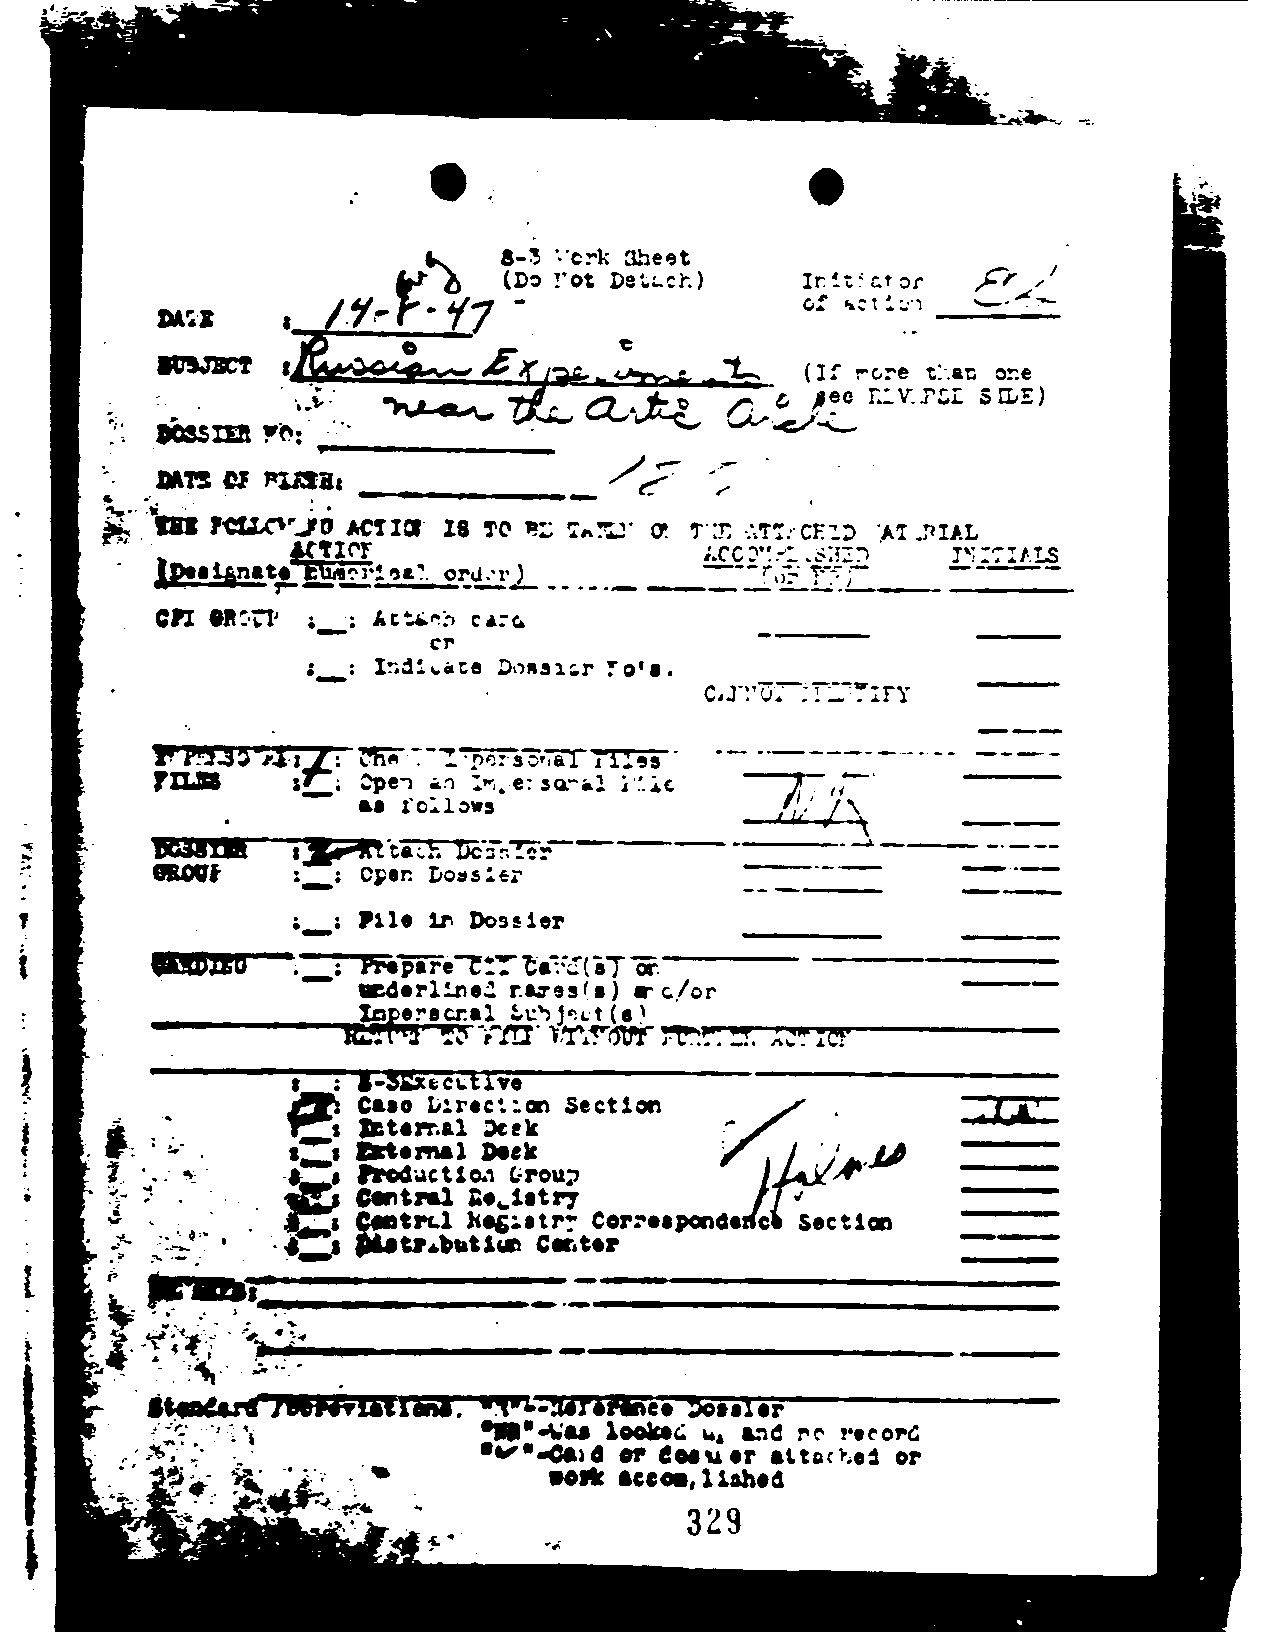 S-3 Work Sheet
(Do Not Detach)
Initiator
of action
DATE : 14-8-47
SUBJECT : Russian Experiments (If more than one
near the Artic Circle see REVERSE SIDE)
DOSSIER NO:
DATE OF BIRTH:
THE FOLLOWING ACTION IS TO BE TAKEN ON THE ATTACHED MATERIAL
ACTION ACCOMPLISHED INITIALS
(Designate numerical order) (or NR)
CPI GROUP :__: Attach card
or
:__: Indicate Dossier No's.
CANNOT IDENTIFY
IMPERSONAL : : Check Impersonal Files
FILES : : Open an Impersonal File
as follows NR
DOSSIER : : Attach Dossier
GROUP :__: Open Dossier
:__: File in Dossier
CARDING :__: Prepare CPI Card(s) on
underlined names(s) and/or
Impersonal Subject(s)
RETURN TO FILE WITHOUT FURTHER ACTION
:__: S-3 Executive
: : Case Direction Section
:__: Internal Desk
:__: External Desk
:__: Production Group
: : Central Registry
:__: Central Registry Correspondence Section
:__: Distribution Center
Holmes
REMARKS:
Standard Abbreviations. "R"--Reference Dossier
"NR"-Was looked up and no record
"✓"-Card or dossier attached or
work accomplished
329